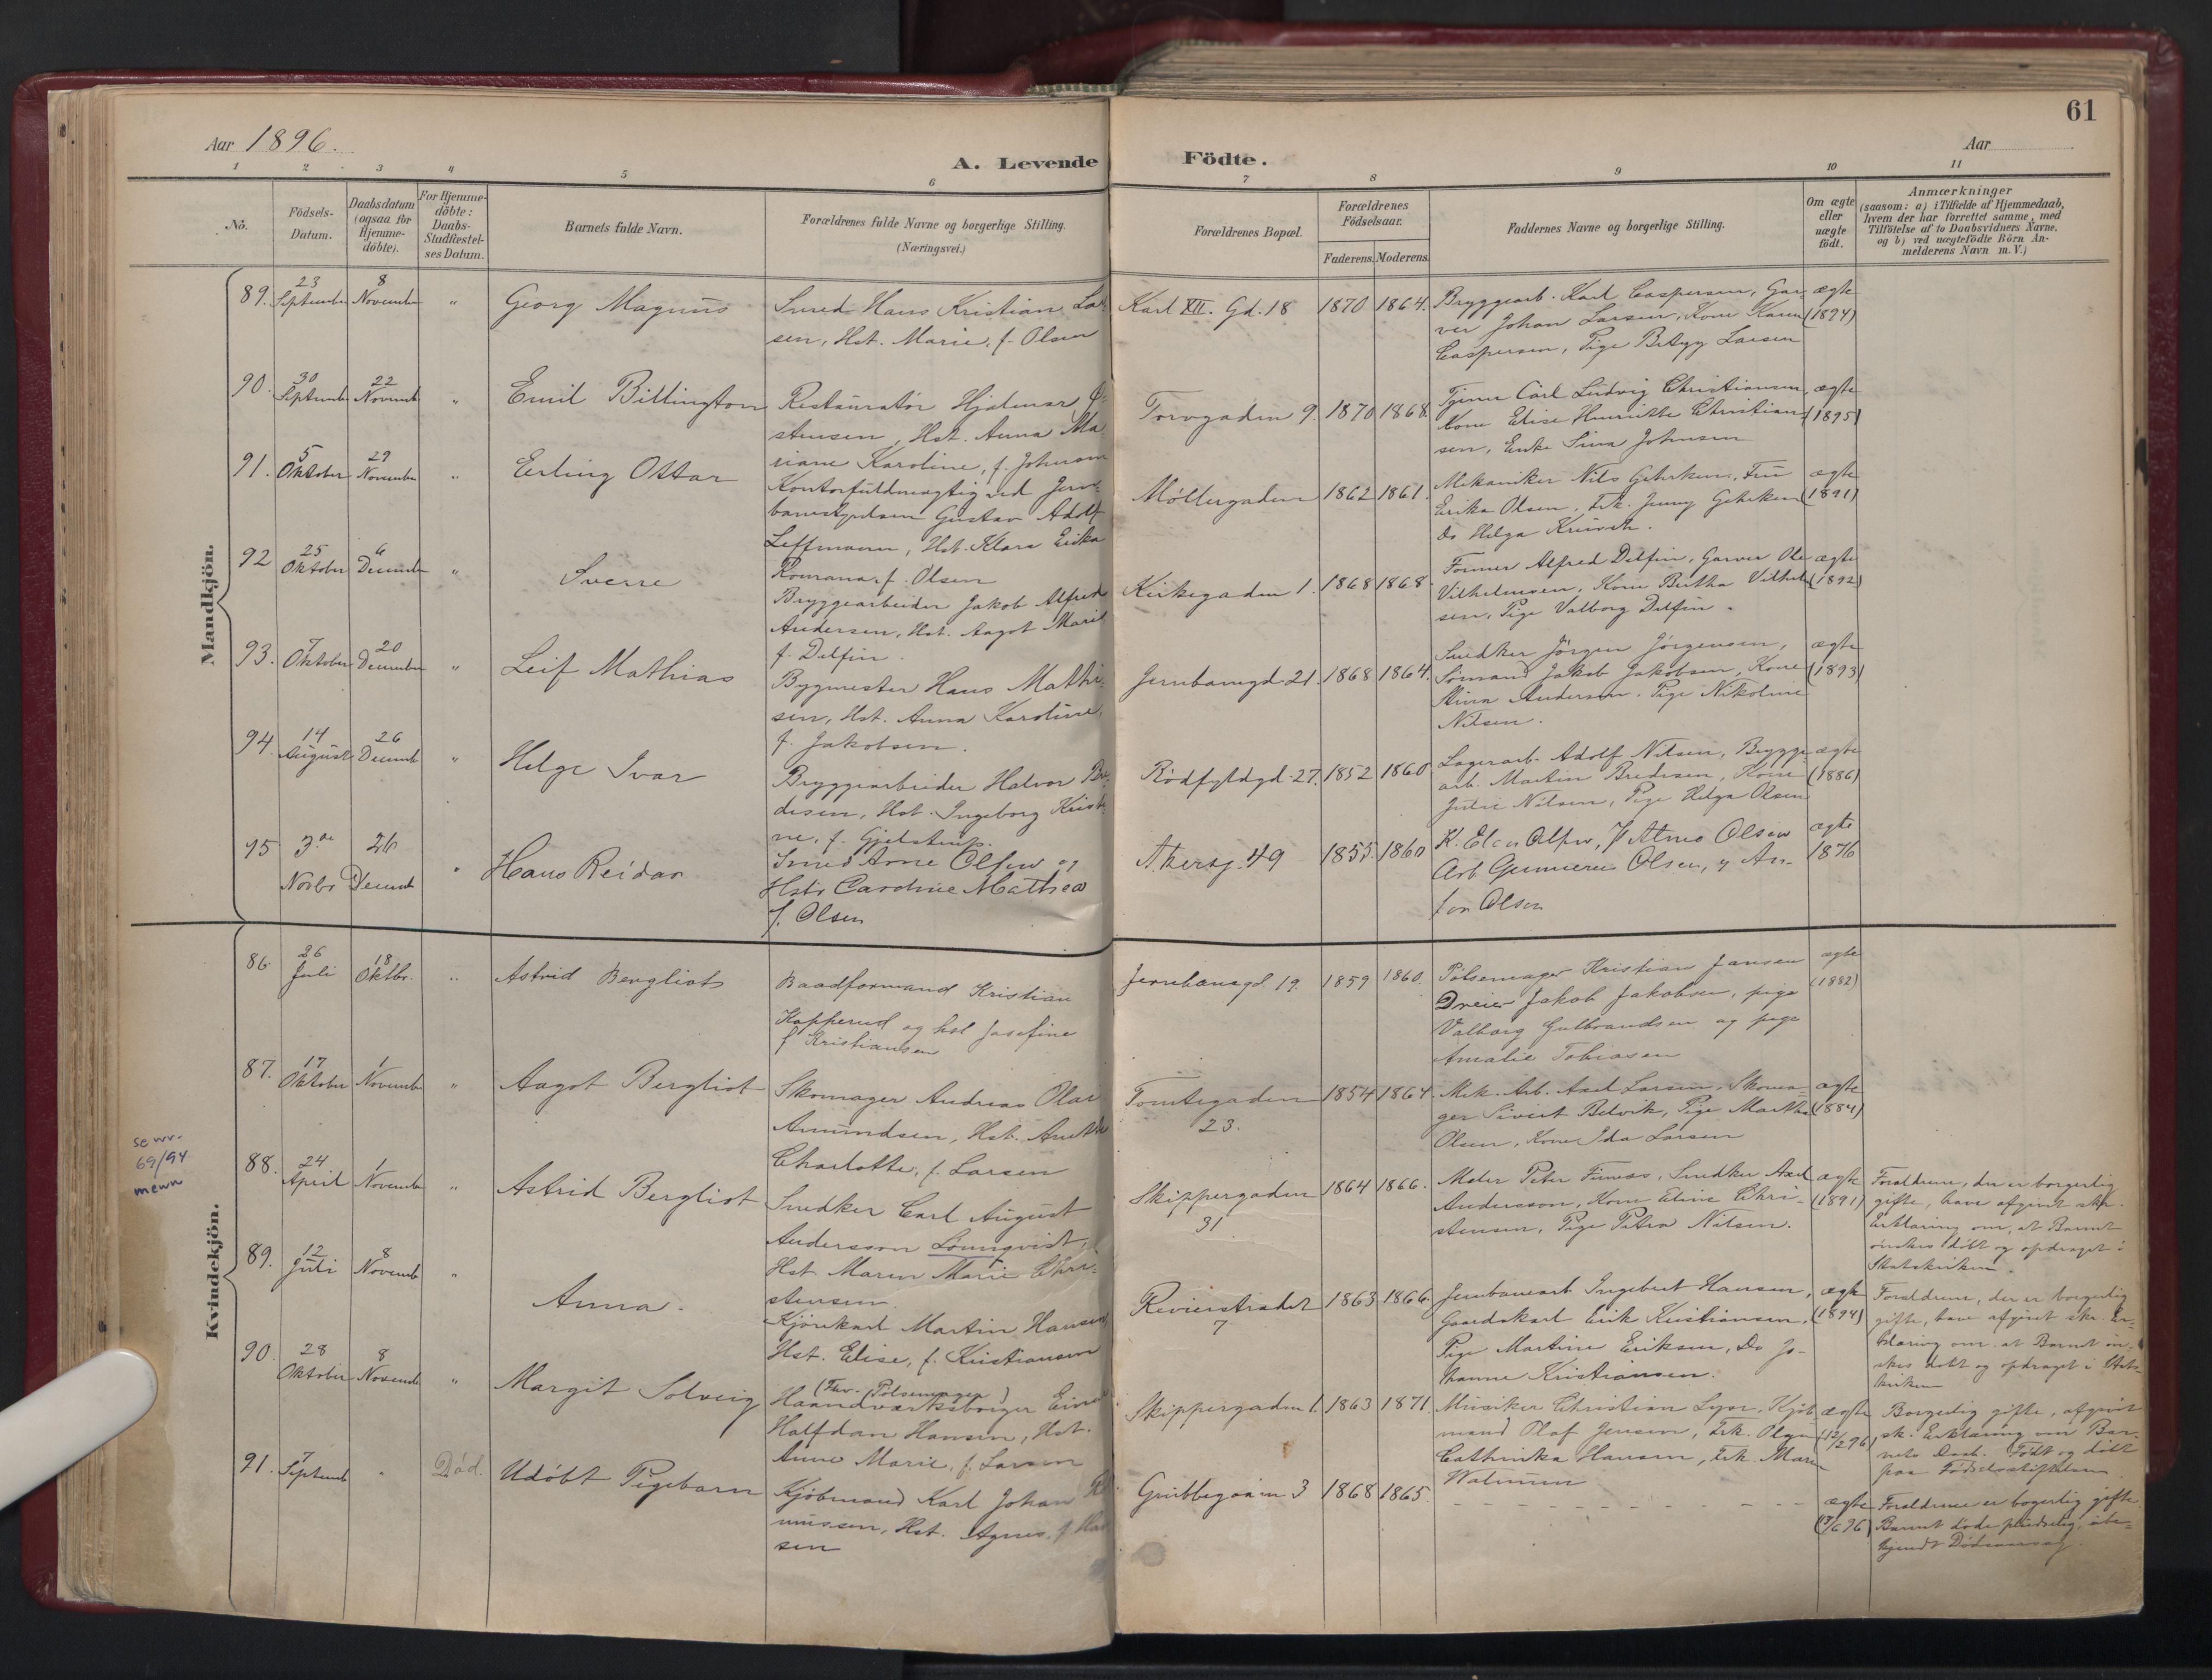 61
Aar 1896.
A. Levende
Födte.
Aar
1 2 3 4 5 6 7 8 9 10 11
Nö.
Födsels-
Datum.
Daabsdatum
(ogsaa for
Hjemme-
döbte).
For Hjemme-
döbte:
Daabs-
Stadfæstel-
ses Datum.
Barnets fulde Navn.
Forældrenes fulde Navne og borgerlige Stilling.
(Næringsvei.)
Forældrenes Bopæl.
Forældrenes
Födselsaar.
Faderens. Moderens.
Faddernes Navne og borgerlige Stilling.
Om ægte
eller
uægte
födt.
Anmærkninger
(saasom: a) i Tilfælde af Hjemmedaab,
hvem der har forrettet samme, med
Tilföielse af to Daabsvidners Navne,
og b) ved uægtefödte Börn An-
melderens Navn m. V.)
Mandkjön.
89. 23 September 8 November " Georg Magnus
Smed Hans Kristian Lar-
sen, Hst. Marie, f. Olsen
Karl XII. Gd. 18 1870 1864.
Bryggearb. Karl Caspersen, Gar-
ver Johan Larsen, Kone Karen
Caspersen, Pige Larsen
ægte
(1894)
90. 30 Septemb 22 Novemb " Emil Billington
Restauratör Hjalmar
stensen, Hst. Anna Ma-
riane Karoline, f. Johnsen
Torvgaden 9. 1870 1868.
Carl Ludvig Christiansen,
Kone Elise Henriette Christian-
sen, Enke Sina Johnsen
ægte
(1895)
91. 5 Oktober 29 November " Erling Ottar
Kontorfuldmægtig ved Jern-
banestyrelsen Gustav Adolf
Leffmann, Hst. Klara Erika
f. Olsen
Möllergaden 1862 1861.
Mekaniker Nils Gehrken, Fru
Erika Olsen, Frk. Jenny Gehrken
Do Helga
ægte
(1891)
92 25 Oktober 6 December " Sverre
Bryggearbeider Jakob Alfred
Andersen, Hst. Aagot Marie
f. Delfin.
Kirkegaden 1. 1868 1868.
Former Alfred Delfin, Garver Ole
Vilhelmsen, Kone Bertha Vilhelm-
sen, Pige Valborg Delfin.
ægte
(1892)
93. 7 Oktober 20 December " Leif Mathias
Bygmester Hans Mathi-
sen, Hst. Anna Karoline,
f. Jakobsen.
Jernbanegd 21. 1868 1864.
Snedker Jörgen Jörgensen,
Sömand Jakob Jakobsen, Kone
Stina Andersen. Pige Nikoline
Nilsen.
ægte
(1893)
94. 14 August 26 Decemb " Helge Ivar
Bryggearbeider Halvor Bre-
desen, Hst. Ingeborg Kristi-
ne, f. Gjelstrup.
Rödfyldgd. 27. 1852 1860.
Lagerarb. Adolf Nilsen, Brygge-
arb. Martin Bredesen, Kone
Julie Nilsen, Pige Helga Olsen
ægte
(1886)
95 3die Novbr 26 Decemb " Hans Reidar
Smed Arne Olsen og
Hstr Caroline Mathea
f. Olsen
Akersg. 49 1855. 1860
Olsen
Arb. Olsen, og An-
ton Olsen
ægte
1876
Kvindekjön.
86 26 Juli 18 Oktbr. " Astrid Bergliot
Baadformand Kristian
Kopperud og hst Josefine
f Kristiansen
Jernbanegd. 19. 1859 1860.
Pölsemager Kristian Jansen
Dreier Jakob Jakobsen, pige
Valborg Gulbrandsen og pige
Amalie Tobiasen
ægte
(1882)
87. 17 Oktober 1 November " Aagot Bergliot
Skomager Andreas Olai
Amundsen, Hst. Anette
Charlotte, f. Larsen
Tomtegaden
23.
1854 1864.
Mek. Arb. Axel Larsen, Skoma-
ger Sivert Belvik, Pige Martha
Olsen, Kone Ida Larsen
ægte
(1884)
se nr.
69/94
menn
88. 24 April 1 November " Astrid Bergliot
Snedker Carl August
Andersson Lönnqvist,
Hst Maren Marie Chri-
stensen.
Skippergaden
31
1864 1866.
Maler Peter Snedker Axel
Andersson, Kone Eline Chri-
stensen, Pige Petra Nilsen.
ægte
(1891)
Forældrene, der er borgerlig
gifte, have afgivet skr.
Erklæring om, at Barnet
önskes döbt og opdraget i
Statskirken.
89. 12 Juli 8 Novemb " Anna.
Kjörekarl Martin Hansen
Hst. Elise, f. Kristiansen
Revierstrædet
7
1863 1866.
Jernbanearb Ingebret Hansen,
Gaardskarl Erik Kristiansen,
Pige Martine Eriksen, Do Jo-
hanne Kristiansen.
ægte
(1894)
Forældrene, der er borgerlig
gifte, have afgivet skr. Er-
klæring om, at Barnet ön-
skes döbt og opdraget i Stats-
kirken
90. 28 Oktober 8 Novemb " Margit Solveig
(Fhv. Pölsemager)
Haandværksborger Einar
Halfdan Hansen, Hst.
Anne Marie, f. Larsen
Skippergaden 1. 1863 1871.
Musiker Christian Kjöb-
mand Olaf Jensen, Frk. Olga
Cathrinka Hansen, Frk. Maren
ægte
(12/2 96)
Borgerlig gifte, afgivet
sk. Erklæring om Bar-
nets Daab. Födt og döbt
paa Födselsstiftelsen
91. 7 Septemb " Död. Udöbt Pigebarn
Kjöbmand Karl Johan
mussen, Hst. Agnes, f. Han-
sen
Grubbegaden 3 1868 1865.
- - - - - - - - - - - -
ægte
Forældrene er borgerlig gifte
Barnet döde pludselig, ube-
kjendt Dödsaarsag.